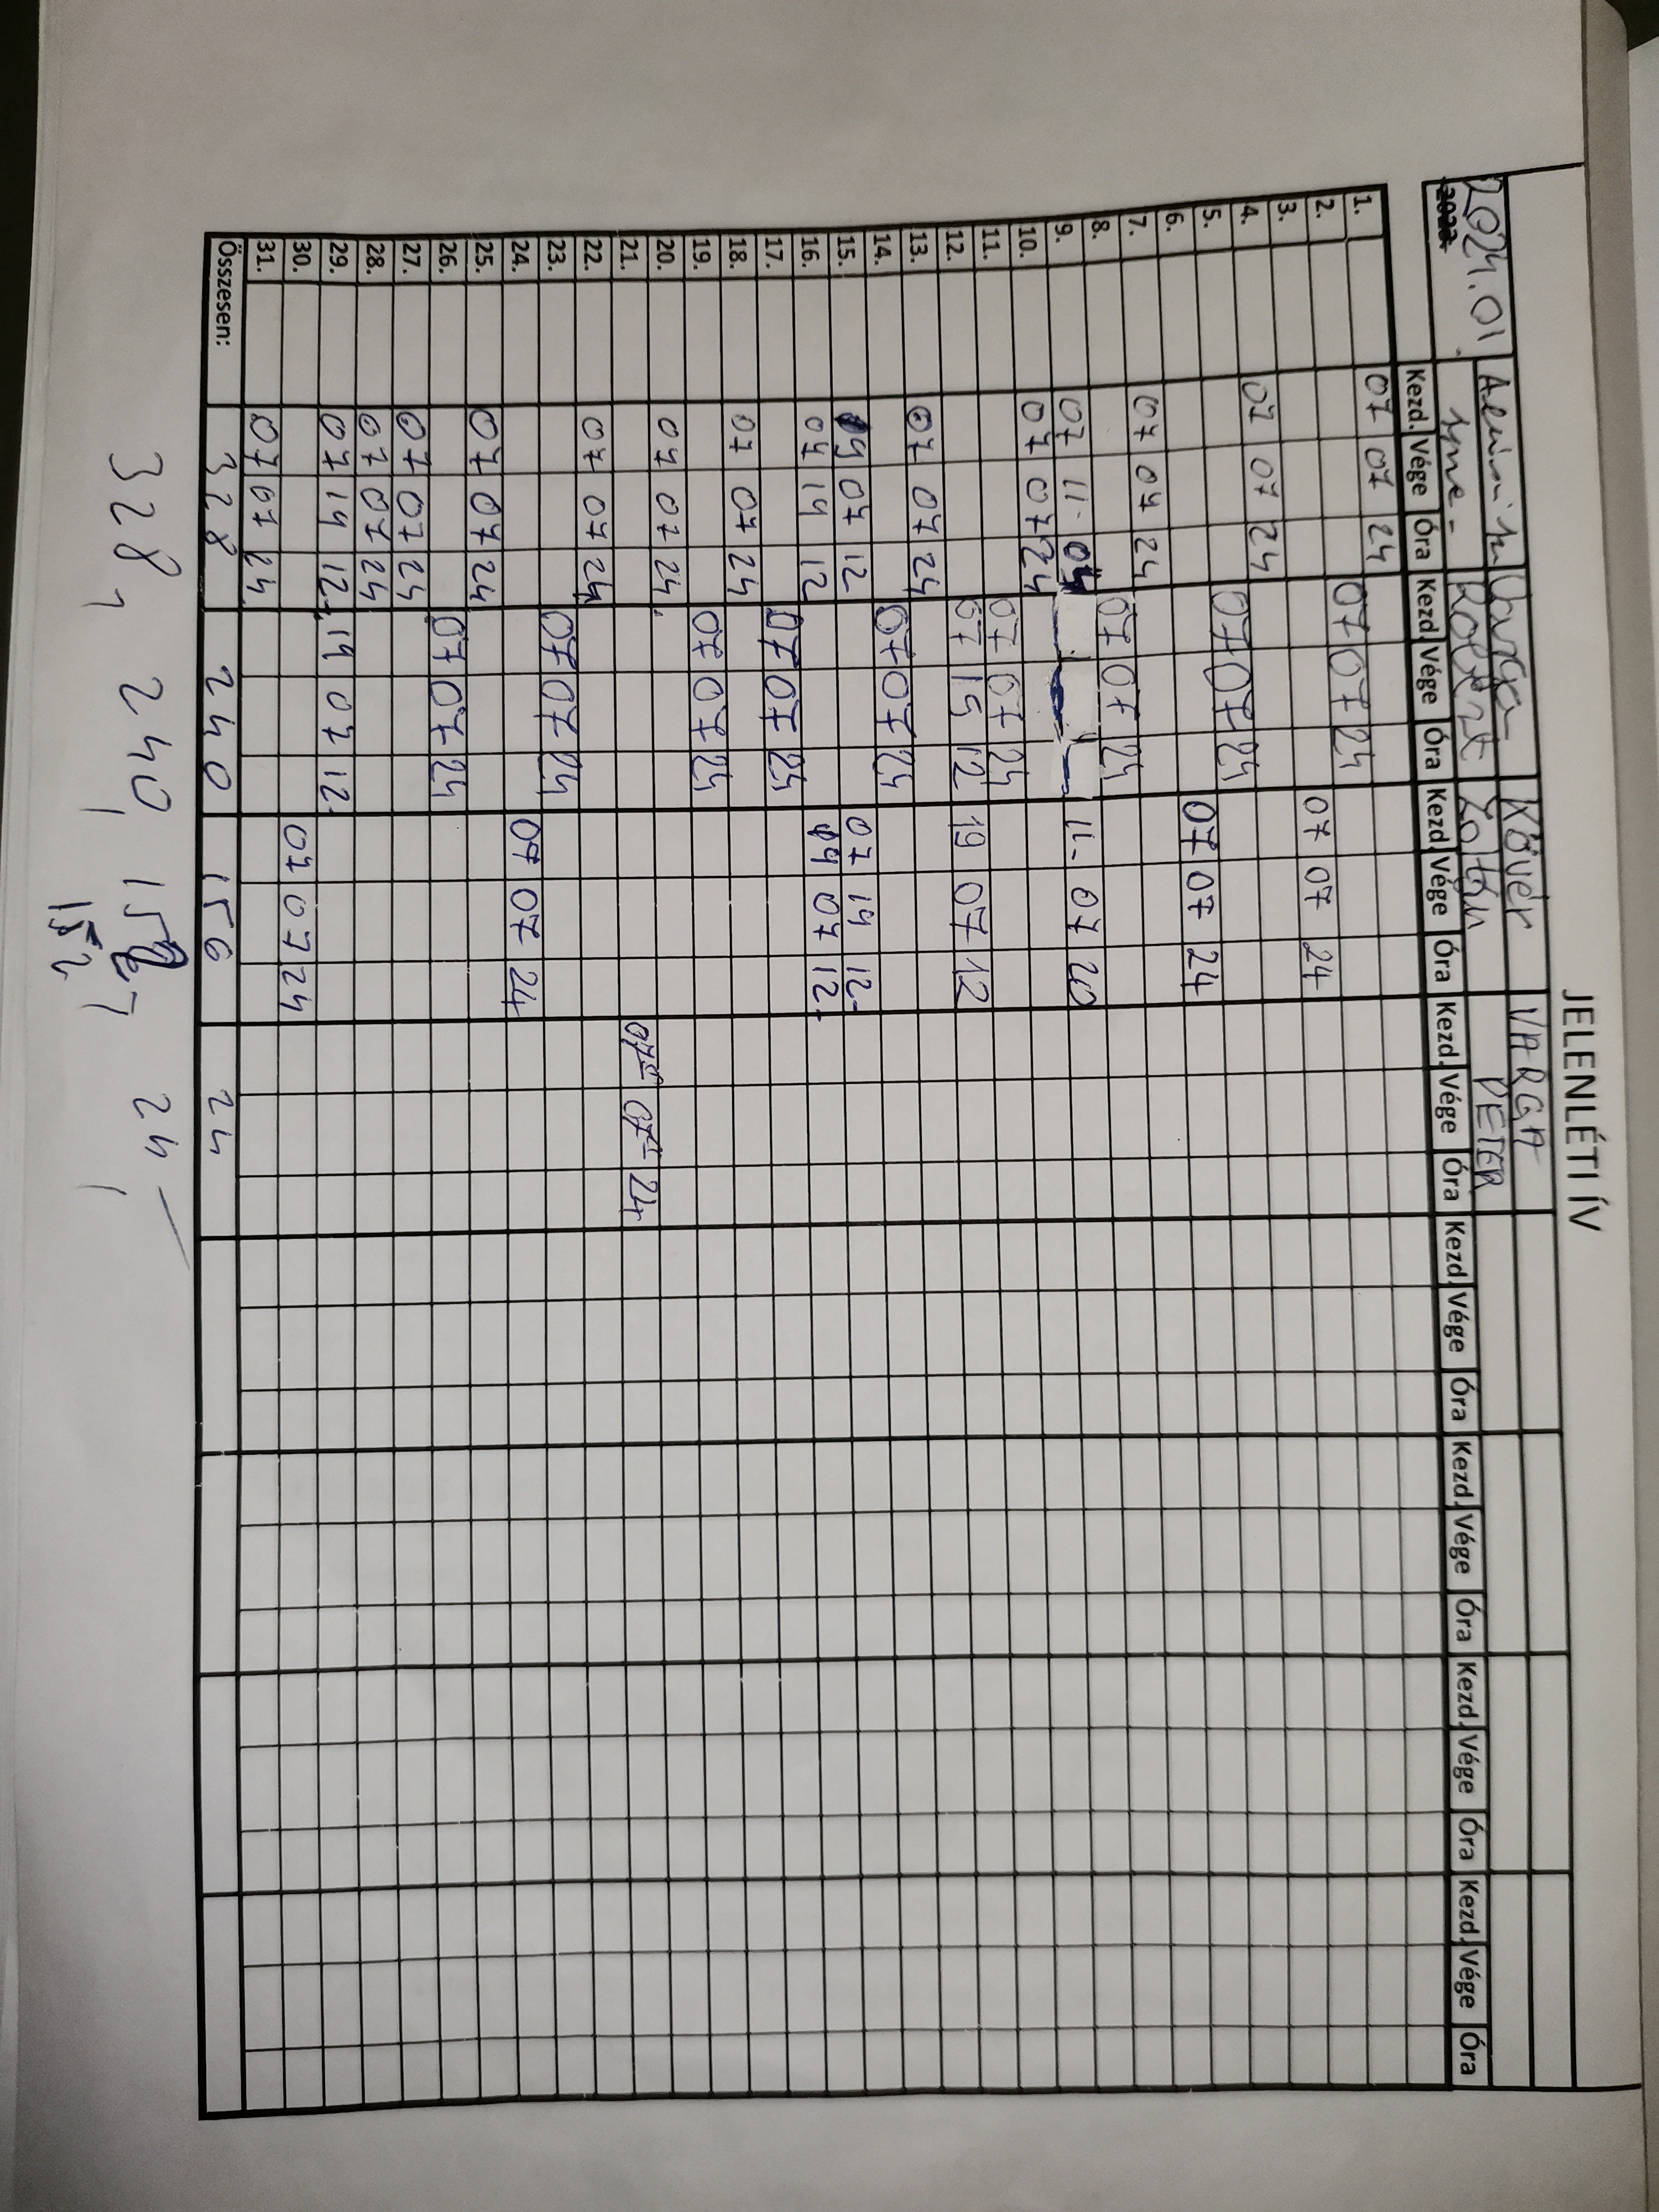 JELENLÉTI ÍV
2024.01. Varga Kövér VARGA
2023. Róbert Zoltán PETER
Kezd. Vége Óra Kezd Vége Óra Kezd Vége Óra Kezd. Vége Óra Kezd Vége Óra Kezd. Vége Óra Kezd. Vége Óra Kezd. Vége Óra
1. 07 07 24
2. 07 07 24
3. 07 07 24
4. 07 07 24
5. 07 07 24
6. 07 07 24
7. 07 07 24
8. 07 07 24
9. 07 11- 04 11- 07 20
10. 07 07 24
11. 07 07 24
12. 07 15 12 19 07 12
13. 07 07 24
14. 07 07 24
15. 19 07 12 07 19 12-
16. 07 19 12 19 07 12-
17. 07 07 24
18. 07 07 24
19. 07 07 24
20. 07 07 24
21. 07 07 24
22. 07 07 24
23. 07 07 24
24. 07 07 24
25. 07 07 24
26. 07 07 24
27. 07 07 24
28. 07 07 24
29. 07 19 12 19 07 12
30. 07 07 24
31. 07 07 24
Összesen: 328 240 156 24
328, 240, 24
152